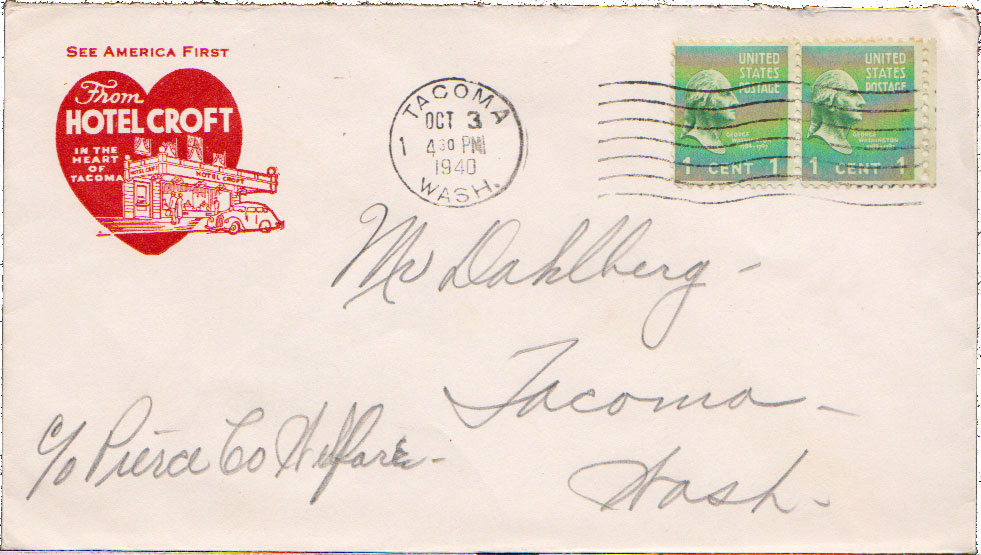 SEE AMERICA FIRST
From
HOTEL CROFT
IN THE
HEART
OF
TACOMA
HOTEL CROFT
HOTEL CROFT
TACOMA
OCT 3
1 4 30 PM
1940
WASH.
UNITED
STATES
POSTAGE
GEORGE
WASHINGTON
1 CENT 1
UNITED
STATES
POSTAGE
GEORGE
WASHINGTON
1 CENT 1
Mr Dahlberg -
Tacoma -
Wash -
c/o Pierce Co Welfare -